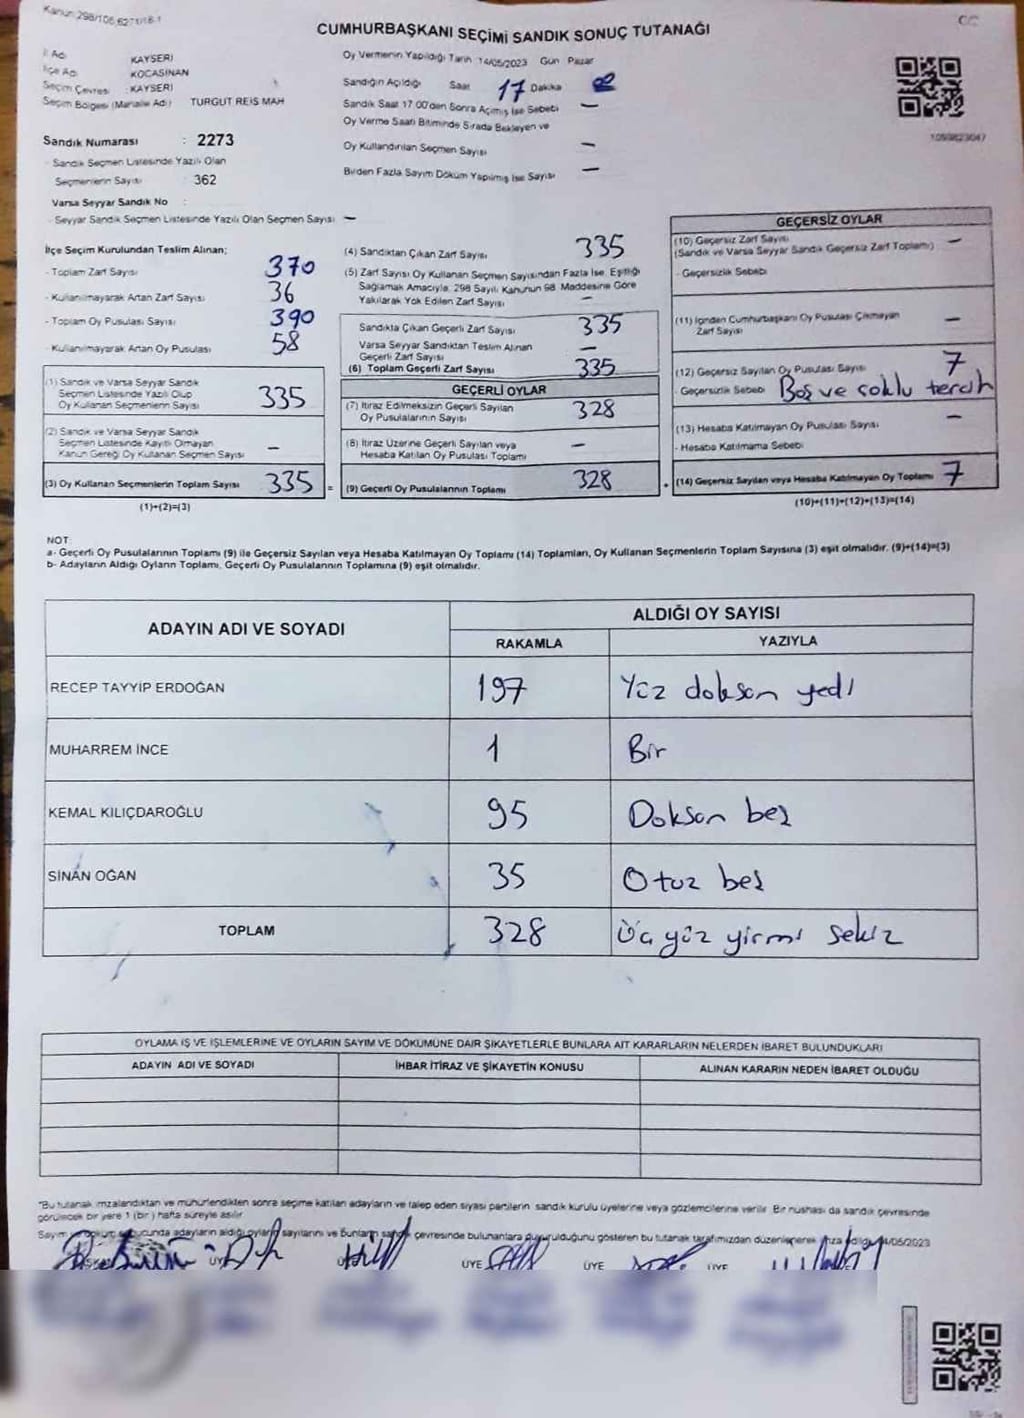 Kanun: 298/105,6271/18-1
CUMHURBAŞKANI SEÇİMİ SANDIK SONUÇ TUTANAĞI
İl Adı KAYSERİ
İlçe Adı KOCASİNAN
Seçim Çevresi : KAYSERİ
Seçim Bölgesi (Mahalle Adı) TURGUT REİS MAH
Sandık Numarası : 2273
- Sandık Seçmen Listesinde Yazılı Olan
Seçmenlerin Sayısı : 362
Varsa Seyyar Sandık No :
- Seyyar Sandık Seçmen Listesinde Yazılı Olan Seçmen Sayısı —
Oy Vermenin Yapıldığı Tarih 14/05/2023 Gün Pazar
Sandığın Açıldığı Saat 17 Dakika
Sandık Saat 17:00'den Sonra Açılmış İse Sebebi —
Oy Verme Saati Bitiminde Sırada Bekleyen ve
Oy Kullandırılan Seçmen Sayısı —
Birden Fazla Sayım Döküm Yapılmış İse Sayısı —
1059823047
İlçe Seçim Kurulundan Teslim Alınan;
- Toplam Zarf Sayısı 370
- Kullanılmayarak Artan Zarf Sayısı 36
- Toplam Oy Pusulası Sayısı 390
- Kullanılmayarak Artan Oy Pusulası 58
(1) Sandık ve Varsa Seyyar Sandık
Seçmen Listesinde Yazılı Olup
Oy Kullanan Seçmenlerin Sayısı 335
(2) Sandık ve Varsa Seyyar Sandık
Seçmen Listesinde Kayıtlı Olmayan
Kanun Gereği Oy Kullanan Seçmen Sayısı —
(3) Oy Kullanan Seçmenlerin Toplam Sayısı 335 =
(1)+(2)=(3)
(4) Sandıktan Çıkan Zarf Sayısı 335
(5) Zarf Sayısı Oy Kullanan Seçmen Sayısından Fazla İse, Eşitliği
Sağlamak Amacıyla, 298 Sayılı Kanunun 98. Maddesine Göre
Yakılarak Yok Edilen Zarf Sayısı —
Sandıkta Çıkan Geçerli Zarf Sayısı 335
Varsa Seyyar Sandıktan Teslim Alınan
Geçerli Zarf Sayısı —
(6) Toplam Geçerli Zarf Sayısı 335
GEÇERLİ OYLAR
(7) İtiraz Edilmeksizin Geçerli Sayılan
Oy Pusulalarının Sayısı 328
(8) İtiraz Üzerine Geçerli Sayılan veya
Hesaba Katılan Oy Pusulası Toplamı —
(9) Geçerli Oy Pusulalarının Toplamı 328 +
GEÇERSİZ OYLAR
(10) Geçersiz Zarf Sayısı —
(Sandık ve Varsa Seyyar Sandık Geçersiz Zarf Toplamı)
- Geçersizlik Sebebi
(11) İçinden Cumhurbaşkanı Oy Pusulası Çıkmayan
Zarf Sayısı —
(12) Geçersiz Sayılan Oy Pusulası Sayısı 7
- Geçersizlik Sebebi Boş ve çoklu tercih
(13) Hesaba Katılmayan Oy Pusulası Sayısı —
- Hesaba Katılmama Sebebi
(14) Geçersiz Sayılan veya Hesaba Katılmayan Oy Toplamı 7
(10)+(11)+(12)+(13)=(14)
NOT:
a- Geçerli Oy Pusulalarının Toplamı (9) ile Geçersiz Sayılan veya Hesaba Katılmayan Oy Toplamı (14) Toplamları, Oy Kullanan Seçmenlerin Toplam Sayısına (3) eşit olmalıdır. (9)+(14)=(3)
b- Adayların Aldığı Oyların Toplamı, Geçerli Oy Pusulalarının Toplamına (9) eşit olmalıdır.
ADAYIN ADI VE SOYADI
ALDIĞI OY SAYISI
RAKAMLA YAZIYLA
RECEP TAYYİP ERDOĞAN 197 Yüz doksan yedi
MUHARREM İNCE 1 Bir
KEMAL KILIÇDAROĞLU 95 Doksan beş
SİNAN OĞAN 35 Otuz beş
TOPLAM 328 Üç yüz yirmi sekiz
OYLAMA İŞ VE İŞLEMLERİNE VE OYLARIN SAYIM VE DÖKÜMÜNE DAİR ŞİKAYETLERLE BUNLARA AİT KARARLARIN NELERDEN İBARET BULUNDUKLARI
ADAYIN ADI VE SOYADI İHBAR İTİRAZ VE ŞİKAYETİN KONUSU ALINAN KARARIN NEDEN İBARET OLDUĞU
*Bu tutanak imzalandıktan ve mühürlendikten sonra seçime katılan adayların ve talep eden siyasi partilerin sandık kurulu üyelerine veya gözlemcilerine verilir. Bir nüshası da sandık çevresinde
görülecek bir yere 1 (bir) hafta süreyle asılır.
Sayım ve döküm sonucunda adayların aldığı oyların sayılarını ve bunların sandık çevresinde bulunanlara duyurulduğunu gösteren bu tutanak tarafımızdan düzenlenerek imza edildi. 14/05/2023
ÜYE ÜYE ÜYE ÜYE